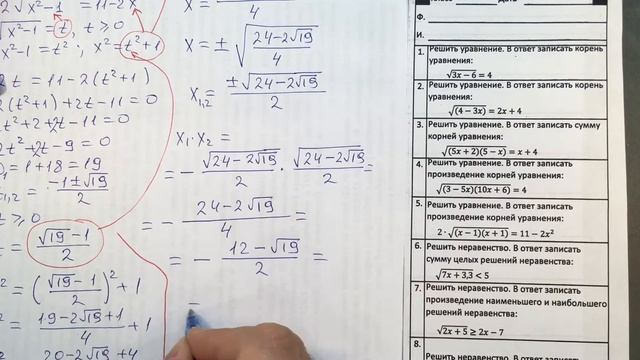 2√x²-1 = 11-2x
√x²-1 = t, t ≥ 0
x²-1 = t²; x² = t²+1
2t = 11-2(t²+1)
2(t²+1)+2t-11=0
2t²+2+2t-11=0
2t²+2t-9=0
= 1+18=19
1,2 = (-1±√19)/2
t ≥ 0
= (√19-1)/2
² = ((√19-1)/2)²+1
= (19-2√19+1)/4 + 1
20-2√19+4
4
x = ±√((24-2√19)/4)
x₁,₂ = ±√(24-2√19)/2
x₁·x₂ =
= - √(24-2√19)/2 · √(24-2√19)/2 =
= - (24-2√19)/4 =
= - (12-√19)/2 =
=
Ф.
И.
1. Решить уравнение. В ответ записать корень
уравнения:
√3x − 6 = 4
2. Решить уравнение. В ответ записать корень
уравнения:
√(4 − 3x) = 2x + 4
3. Решить уравнение. В ответ записать сумму
корней уравнения:
√(5x + 2)(5 − x) = x + 4
4. Решить уравнение. В ответ записать
произведение корней уравнения:
√(3 − 5x)(10x + 6) = 4
5. Решить уравнение. В ответ записать
произведение корней уравнения:
2 · √(x − 1)(x + 1) = 11 − 2x²
6. Решить неравенство. В ответ записать
сумму целых решений неравенства:
√7x + 3,3 < 5
7. Решить неравенство. В ответ записать
произведение наименьшего и наибольшего
решений неравенства:
√2x + 5 ≥ 2x − 7
8. Решить неравенство. В ответ записать